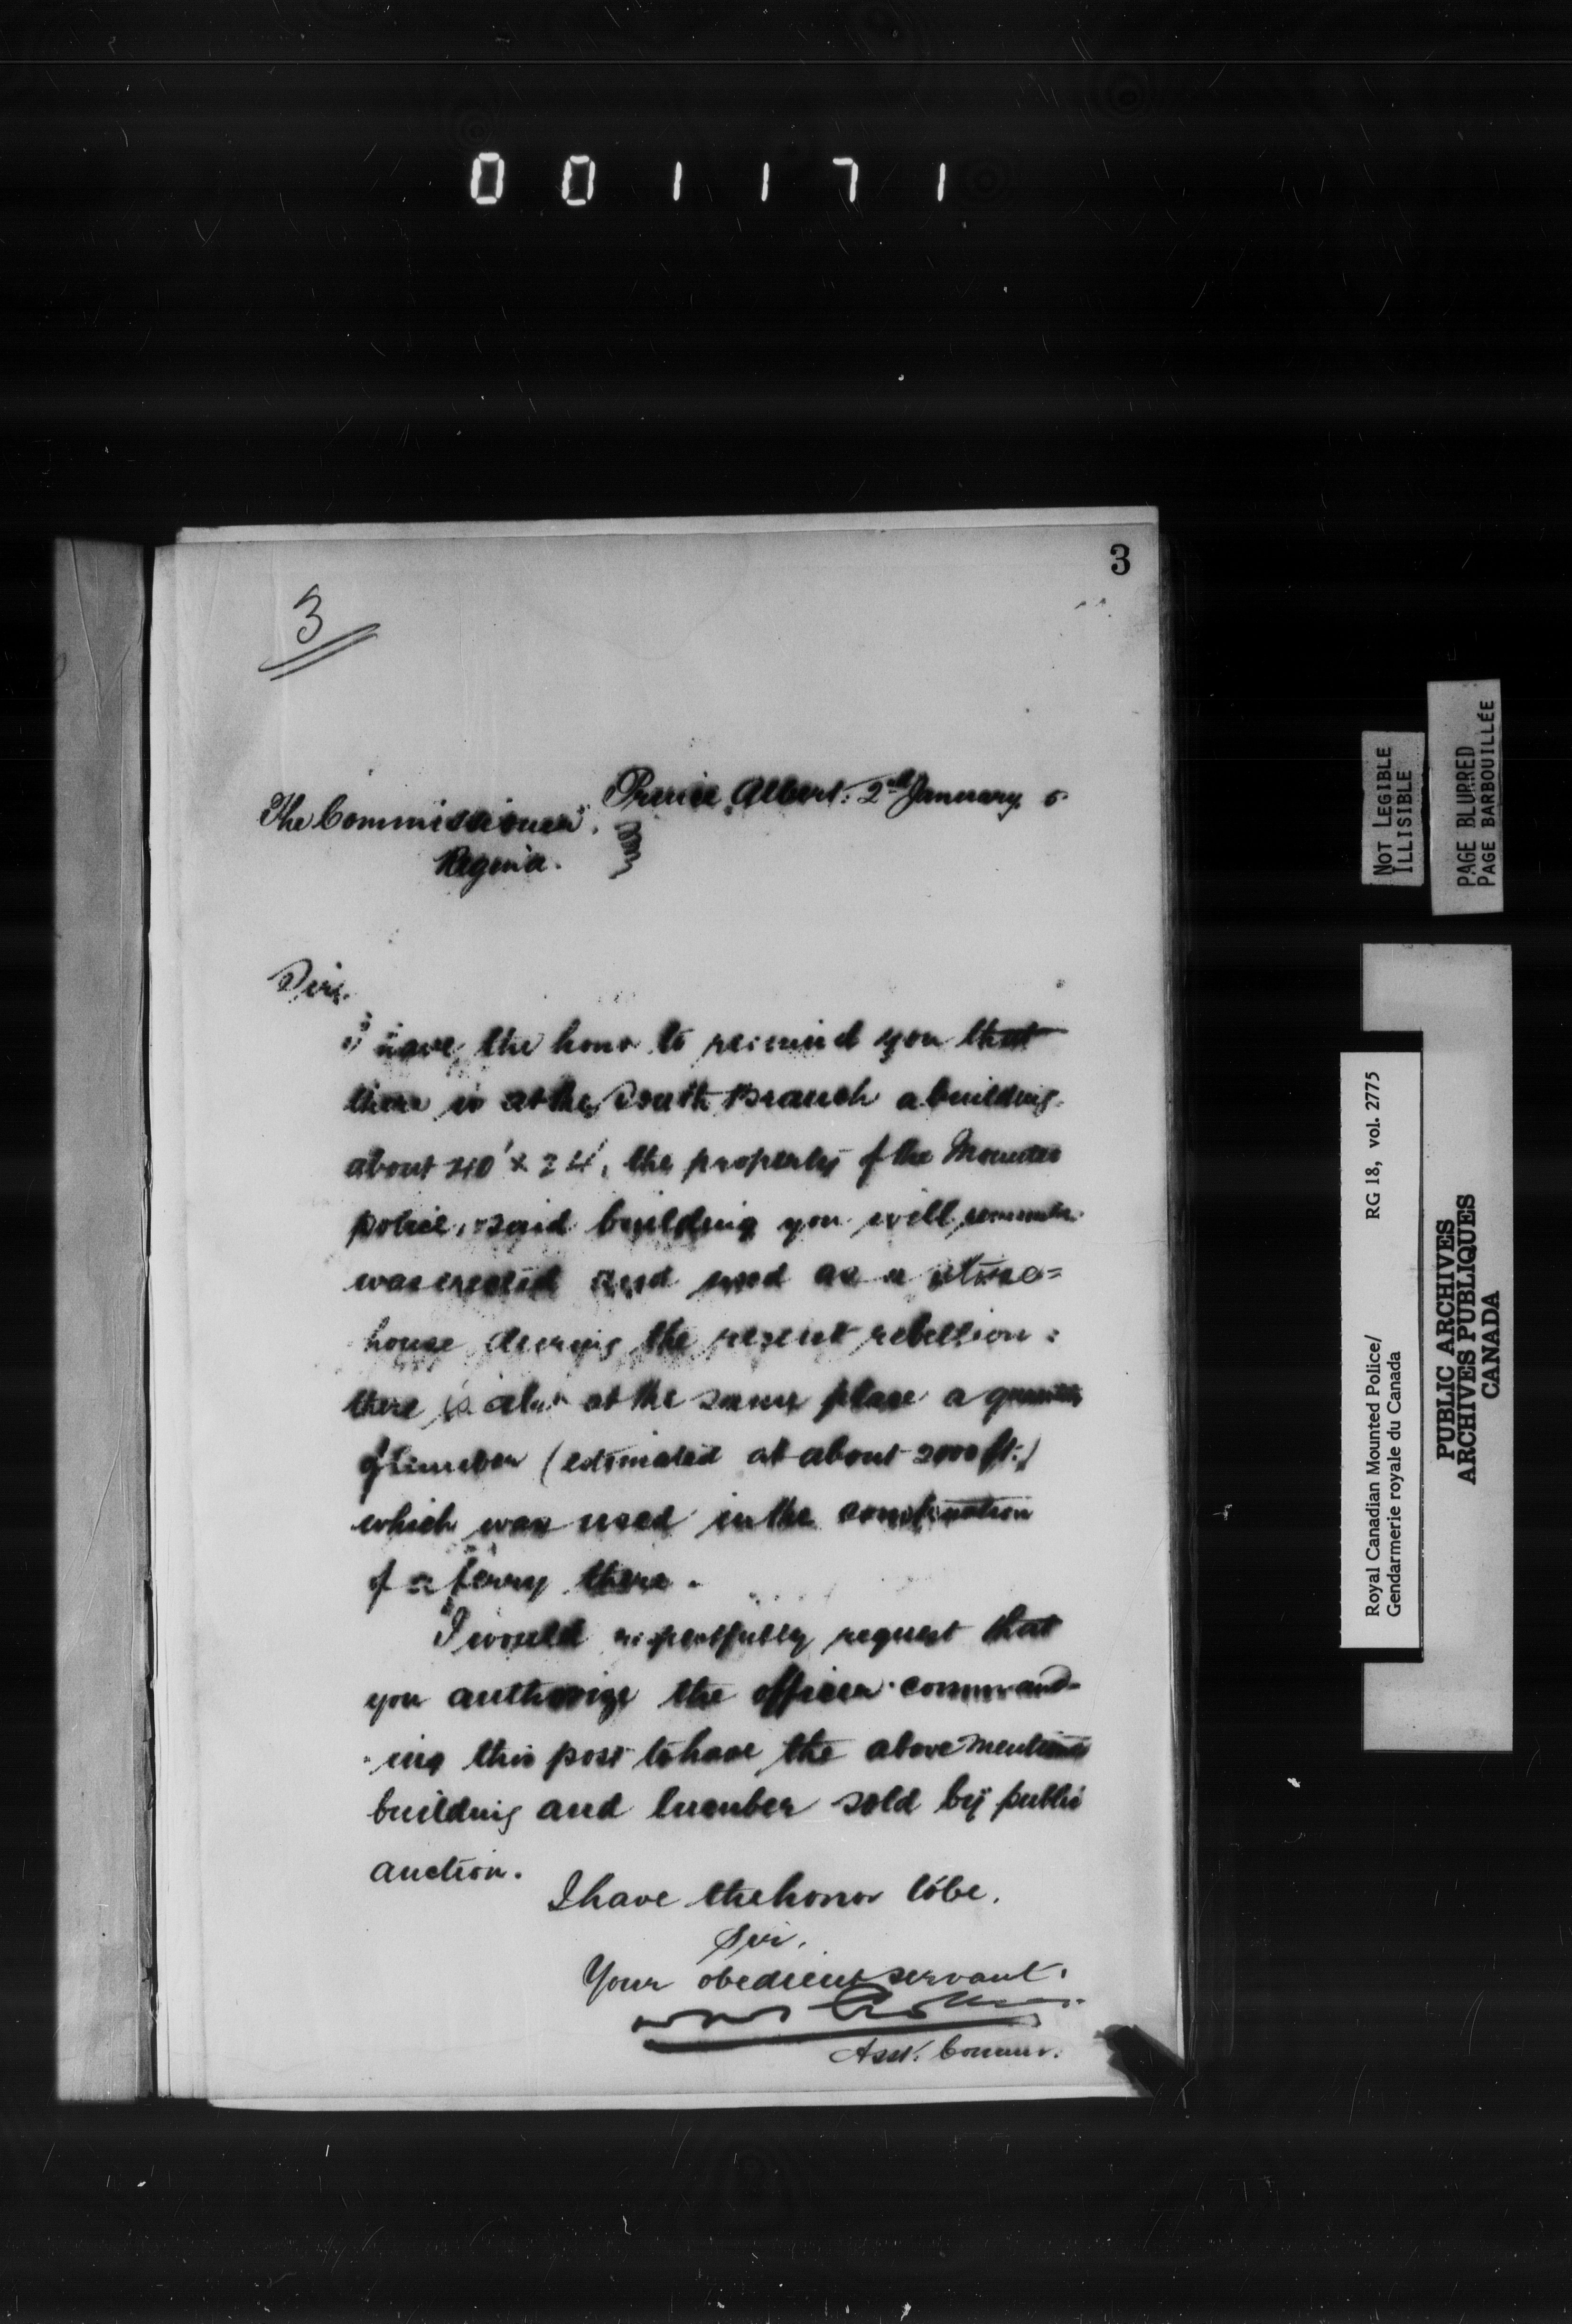 001171
3
3
Prince Albert. 2nd January 6
The Commissioner.
Regina.
Sir,
I have the honor to remind you that
there is at the South Branch a building
about 40' x 24', the property of the Mounted
police, said building you will
was erected and used as a store=
house during the recent rebellion:
there is also at the same place a quantity
of lumber (estimated at about 2000 ft.)
which was used in the construction
of a ferry there.
I would respectfully request that
you authorize the officer command-
ing this post to have the above mentioned
building and lumber sold by public
auction.
I have the honor to be,
Sir,
Your obedient servant.
Asst. Commr.
NOT LEGIBLE
ILLISIBLE
PAGE BLURRED
PAGE BARBOUILLÉE
Royal Canadian Mounted Police/ RG 18, vol. 2775
Gendarmerie royale du Canada
PUBLIC ARCHIVES
ARCHIVES PUBLIQUES
CANADA